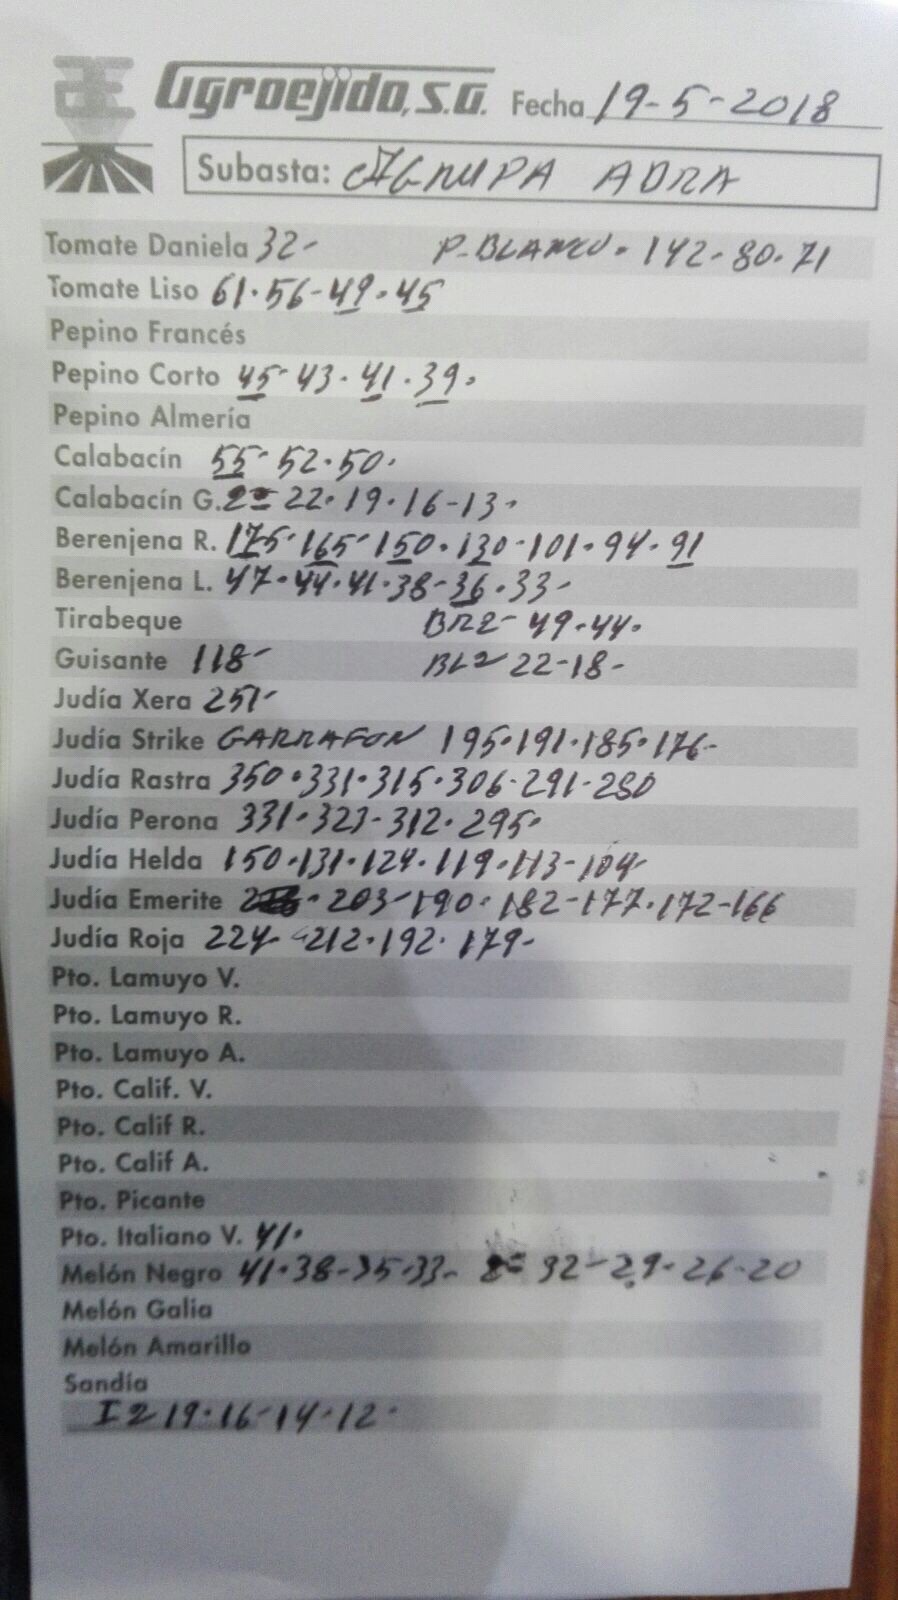 Agroejido, S.A. Fecha 19-5-2018
Subasta: AGRUPA ADRA
Tomate Daniela 32- P. BLANCO. 142. 80. 71
Tomate Liso 61. 56- 49. 45
Pepino Francés
Pepino Corto 45- 43. 41. 39.
Pepino Almería
Calabacín 55- 52. 50.
Calabacín G. 2= 22. 19. 16-13.
Berenjena R. 175. 165- 150. 130-101. 94. 91
Berenjena L. 47. 44. 41. 38- 36. 33-
Tirabeque BR2- 49. 44.
Guisante 118- BL2 22-18-
Judía Xera 251-
Judía Strike GARRAFON 195. 191. 185. 176-
Judía Rastra 350. 331. 315. 306- 291- 280
Judía Perona 331. 323- 312. 295.
Judía Helda 150. 131. 124. 119. 113- 104-
Judía Emerite 203- 190. 182-177. 172-166
Judía Roja 224- 212. 192. 179-
Pto. Lamuyo V.
Pto. Lamuyo R.
Pto. Lamuyo A.
Pto. Calif. V.
Pto. Calif R.
Pto. Calif A.
Pto. Picante
Pto. Italiano V. 41.
Melón Negro 41. 38-35. 33- 2= 32-29. 26-20
Melón Galia
Melón Amarillo
Sandía
I 2 19. 16-14. 12.